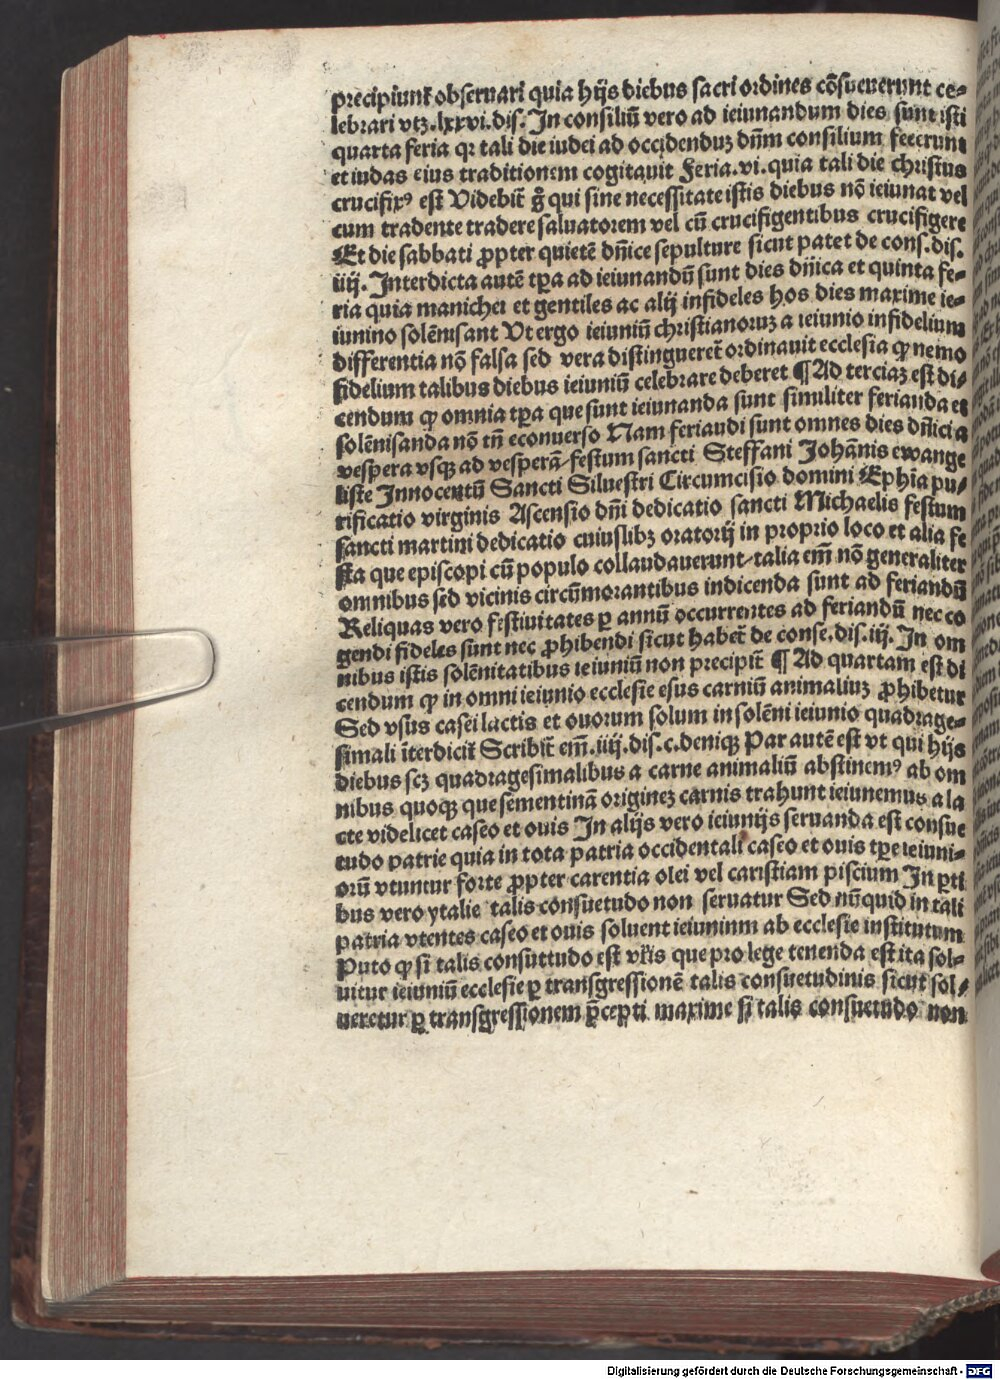 precipiunt̄ obseruari quia hijs diebus sacri ordines cōsueuerunt ce-
lebrari vtꝫ.lxxvi.dis. In consiliū vero ad ieiunandum dies sunt isti
quarta feria qꝛ tali die iudei ad occidenduꝫ dn̄m consilium fecerunt
et iudas eius traditionem cogitauit Feria.vi.quia tali die christus
crucifixꝰ est Videbit̄ g̊ qui sine necessitate istis diebus nō ieiunat vel
cum tradente tradere saluatorem vel cū crucifigentibus crucifigere
Et die sabbati ꝓpter quietē dn̄ice sepulture sicut patet de cons.dis.
iiij. Interdicta autē tꝑa ad ieiunandū sunt dies dn̄ica et quinta fe-
ria quia manichei et gentiles ac alij infideles hos dies maxime ie-
iunino solēnisant Vt ergo ieiuniū christianoruꝫ a ieiunio infidelium
differentia nō falsa sed vera distingueret̄ ordinauit ecclesia ꝙ nemo
fidelium talibus diebus ieiuniū celebrare deberet ¶ Ad terciaꝫ est di-
cendum ꝙ omnia tꝑa que sunt ieiunanda sunt similiter ferianda et
solēnisanda nō tn̄ econuerso Nam feriandi sunt omnes dies dn̄ici a
vespera vsqꝫ ad vesperā-festum sancti Steffani Johānis ewange
liste Innocentū Sancti Siluestri Circumcisio domini Ephīa pu-
rificatio virginis Ascensio dn̄i dedicatio sancti Michaelis festum
sancti martini dedicatio cuiuslibꝫ oratorij in proprio loco et alia fe
sta que episcopi cū populo collaudauerunt-talia em̄ nō generaliter
omnibus sed vicinis circūmorantibus indicenda sunt ad feriandū
Reliquas vero festiuitates ꝑ annū occurrentes ad feriandū nec co
gendi fideles sunt nec ꝓhibendi sicut habet̄ de conse.dis.iij. In om
nibus istis solēnitatibus ieiuniū non precipit̄ ¶ Ad quartam est di
cendum ꝙ in omni ieiunio ecclesie esus carniū animaliuꝫ ꝓhibetur
Sed vsus casei lactis et ouorum solum in solēni ieiunio quadrage-
simali īterdicit̄ Scribit̄ em̄.iiij.dis.c.deniqꝫ Par autē est vt qui hijs
diebus scꝫ quadragesimalibus a carne animaliū abstinemꝰ ab om
nibus quoqꝫ que sementinā origineꝫ carnis trahunt ieiunemus a la
cte videlicet caseo et ouis In alijs vero ieiunijs seruanda est consue
tudo patrie quia in tota patria occidentali caseo et ouis tꝑe ieiuni-
orū vtuntur forte ꝓpter carentia olei vel caristiam piscium In ꝑti
bus vero ytalie talis consuetudo non seruatur Sed nūquid in tali
patria vtentes caseo et ouis soluent ieiuninm ab ecclesie institutum
Puto ꝙ si talis consuttudo est vr̄is que pro lege tenenda est ita sol-
uitur ieiuniū ecclesie ꝑ transgressionē talis consuetudinis sicut sol-
ueretur ꝑ transgressionem p̄cepti maxime si talis consuetudo non
Digitalisierung gefördert durch die Deutsche Forschungsgemeinschaft - DFG